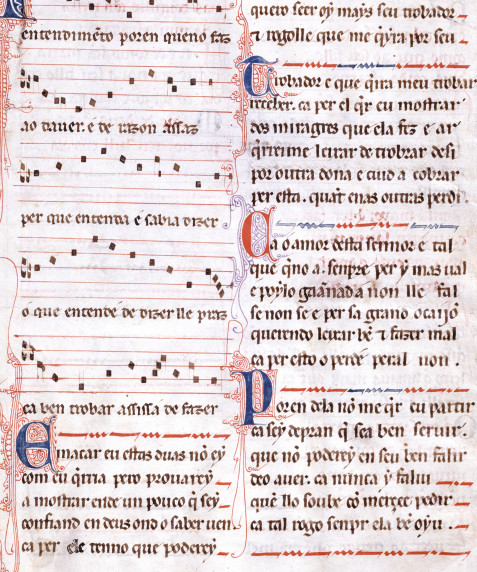 entendimẽto poren queno faz
ao dauer. e de razon assaz
per que entenda e sabia dizer
o que entende de dizer lle praz
ca ben trobar assi ssa de fazer
E macar eu estas duas nõ ey
com eu q̃rria pero prouarey
a mostrar ende un pouco q̃ sey
confiand en deus ond o saber uen
ca per ele tenno que poderey
quero seer oy mays seu trobador
⁊ rogolle que me q̃yra por seu
Trobador e que q̃ira meu trobar
receber. ca per el q̃r eu mostrar
dos miragres que ela fez e ar
q̃rreime leixar de trobrar desi
por outra dona e cuid a cobrar
per esta. quãt enas outras perdi.
Ca o amor desta sennor e tal
que q̃no a. senpre per y mas ual
e poylo gaãnnad a non lle fal
se non se e per sa grand ocaijõ
querendo leixar bẽ ⁊ fazer mal
ca per esto o perde peral non.
Poren dela nõ me q̃r eu partir
ca sey de pran q̃ sea ben seruir.
que nõ poderey en seu ben falir
deo auer. ca nunca y faliu
quẽ llo soube cõ merçee pedir
ca tal rogo senpr ela bẽ oyu.